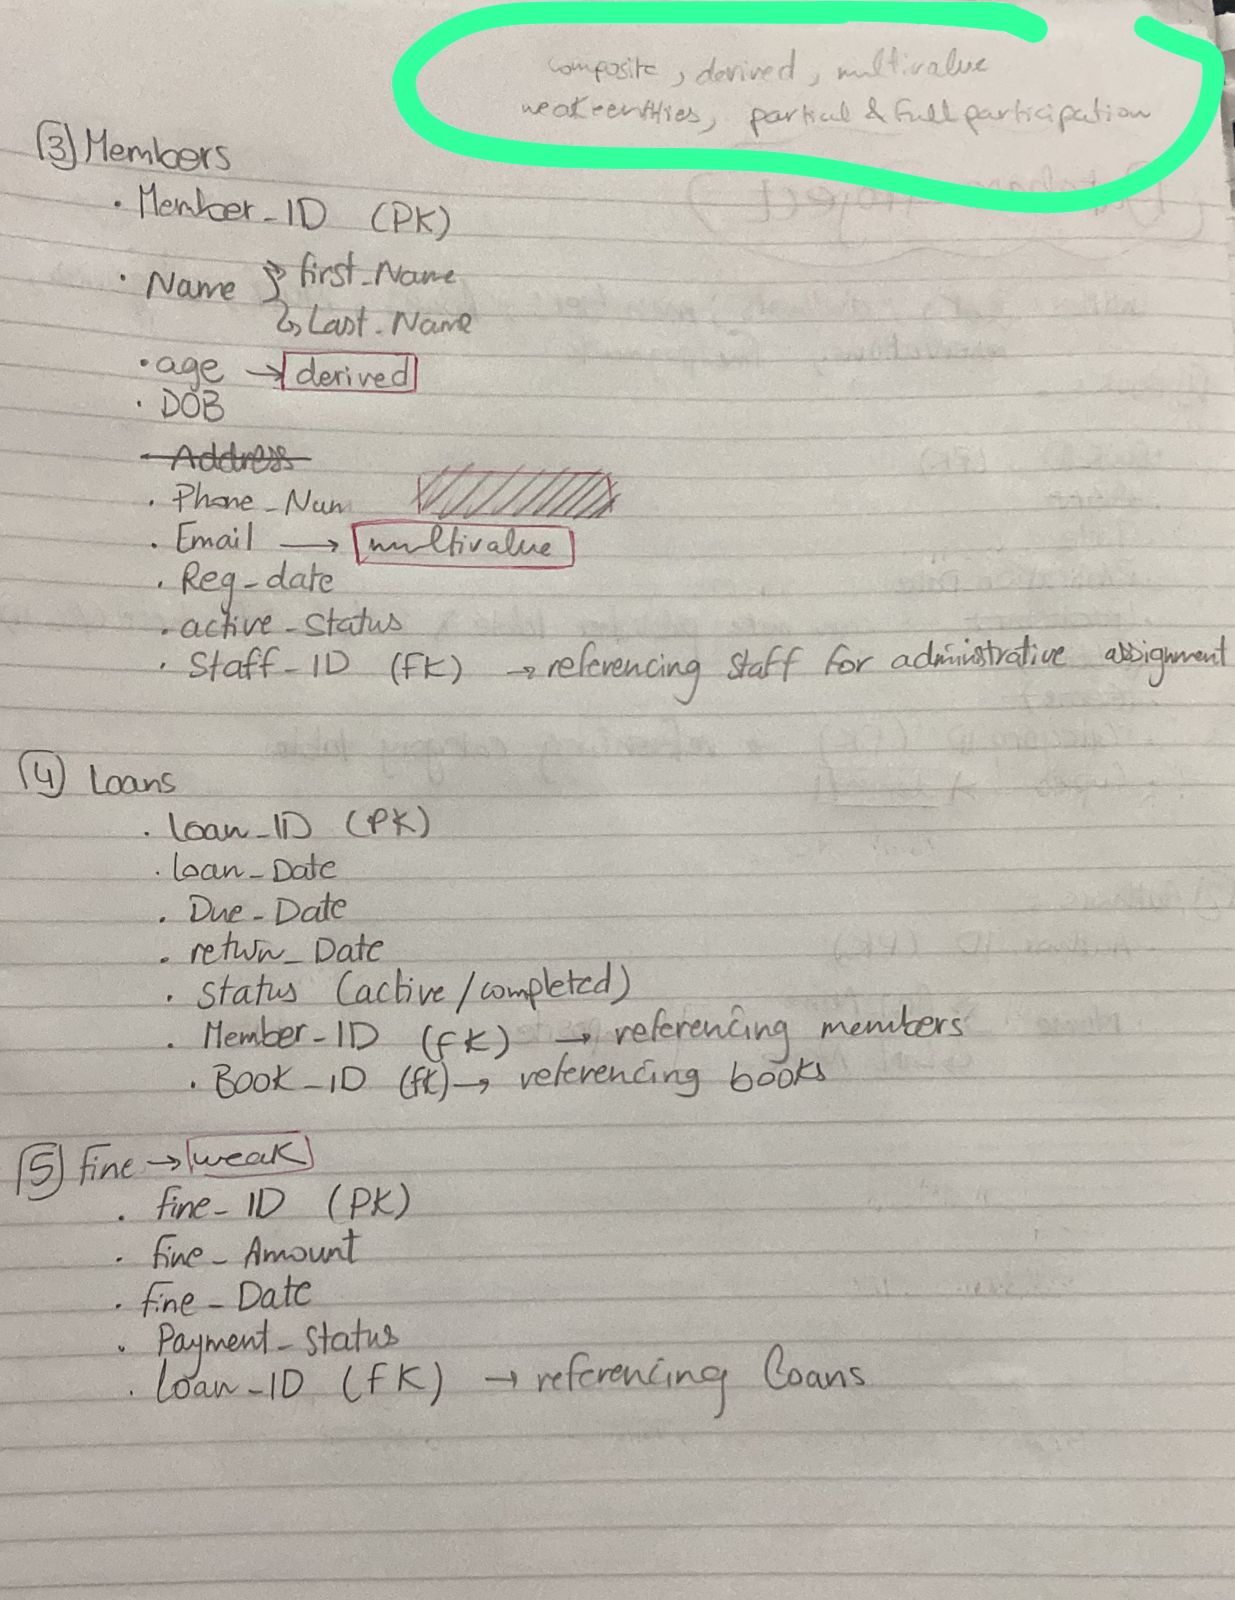 composite, derived, multivalue
weak entities, partial & full participation
③ Members
• Member_ID (PK)
• Name → first_Name
↳ Last_Name
• age → derived
• DOB
Address
• Phone_Num
• Email → multivalue
• Reg_date
• active_status
• Staff_ID (FK) → referencing staff for adminstrative assignment
④ Loans
• loan_ID (PK)
• loan_Date
• Due_Date
• return_Date
• Status (active/completed)
• Member_ID (fK) → referencing members
• Book_ID (fk) → referencing books
⑤ fine → weak
• fine_ID (PK)
• fine_Amount
• fine_Date
• Payment_Status
• loan_ID (fK) → referencing loans